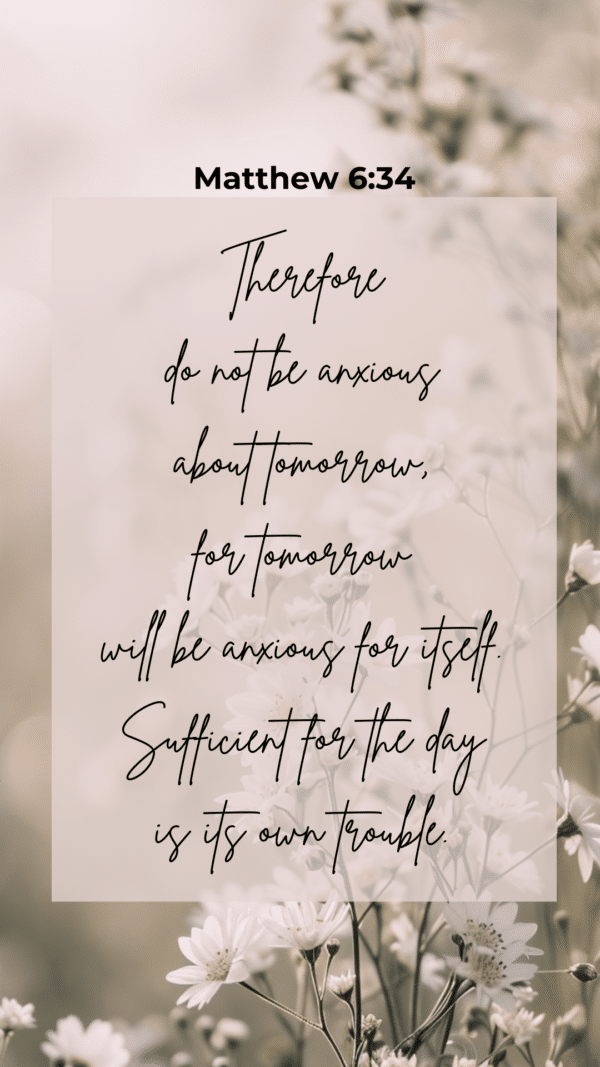 Matthew 6:34
Therefore
do not be anxious
about tomorrow,
for tomorrow
will be anxious for itself.
Sufficient for the day
is its own trouble.